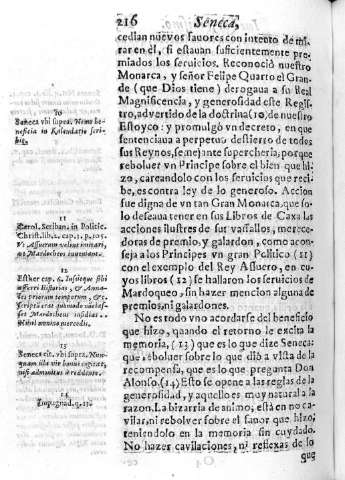 216 Seneca,
cedían nuevos favores con intento de mi-
rar en él, si estauan suficientemente pre-
miados los seruicios. Reconoció nuestro
Monarca, y señor Felipe Quarto el Gran-
de (que Dios tiene) derogaua a su Real
Magnificencia, y generosidad este Regis-
tro, advertido de la doctrina (10, de nuestro
Estoyco: y promulgó vn decreto, en que
sentenciaua a perpetuo destierro de todos
sus Reynos, semejante supercheria; porque
reboluer vn Principe sobre el bien que hi-
zo, careandolo con los seruicios que reci-
be, es contra ley de lo generoso. Accion
fue digna de vn tan Gran Monarca, que so-
lo deseaua tener en sus Libros de Caxa las
acciones ilustres de sus vassallos, merece-
doras de premio, y galardon, como acon-
seja a los Principes vn gran Politico (11)
con el exemplo del Rey Assuero, en cu-
yos libros (12) se hallaron los seruicios de
Mardoqueo, sin hazer mencion alguna de
premios, ni galardones.
No es todo vno acordarse del beneficio
que hizo, quando el retorno le excita la
memoria, (13) que es lo que dize Seneca:
que reboluer sobre lo que dió a vista de la
recompensa, que es lo que pregunta Don
Alonso. (14) Esto se opone a las reglas de la
generosidad, y aquello es muy natural a la
razon. La bizarria de animo, está en no ca-
vilar, ni rebolver sobre el fauor que hizo,
teniendolo en la memoria sin cuydado.
No hazer cavilaciones, ni reflexas de lo
que
10
Seneca vbi supra. Nemo be-
neficia in Kalendario scri-
bit.
11
Carol. Scriban. in Politic.
Christ. lib. 2. cap. 3. p. 305.
12
Esther cap. 6.
13
Senec. cit. vbi supra.
14
Impugnad.